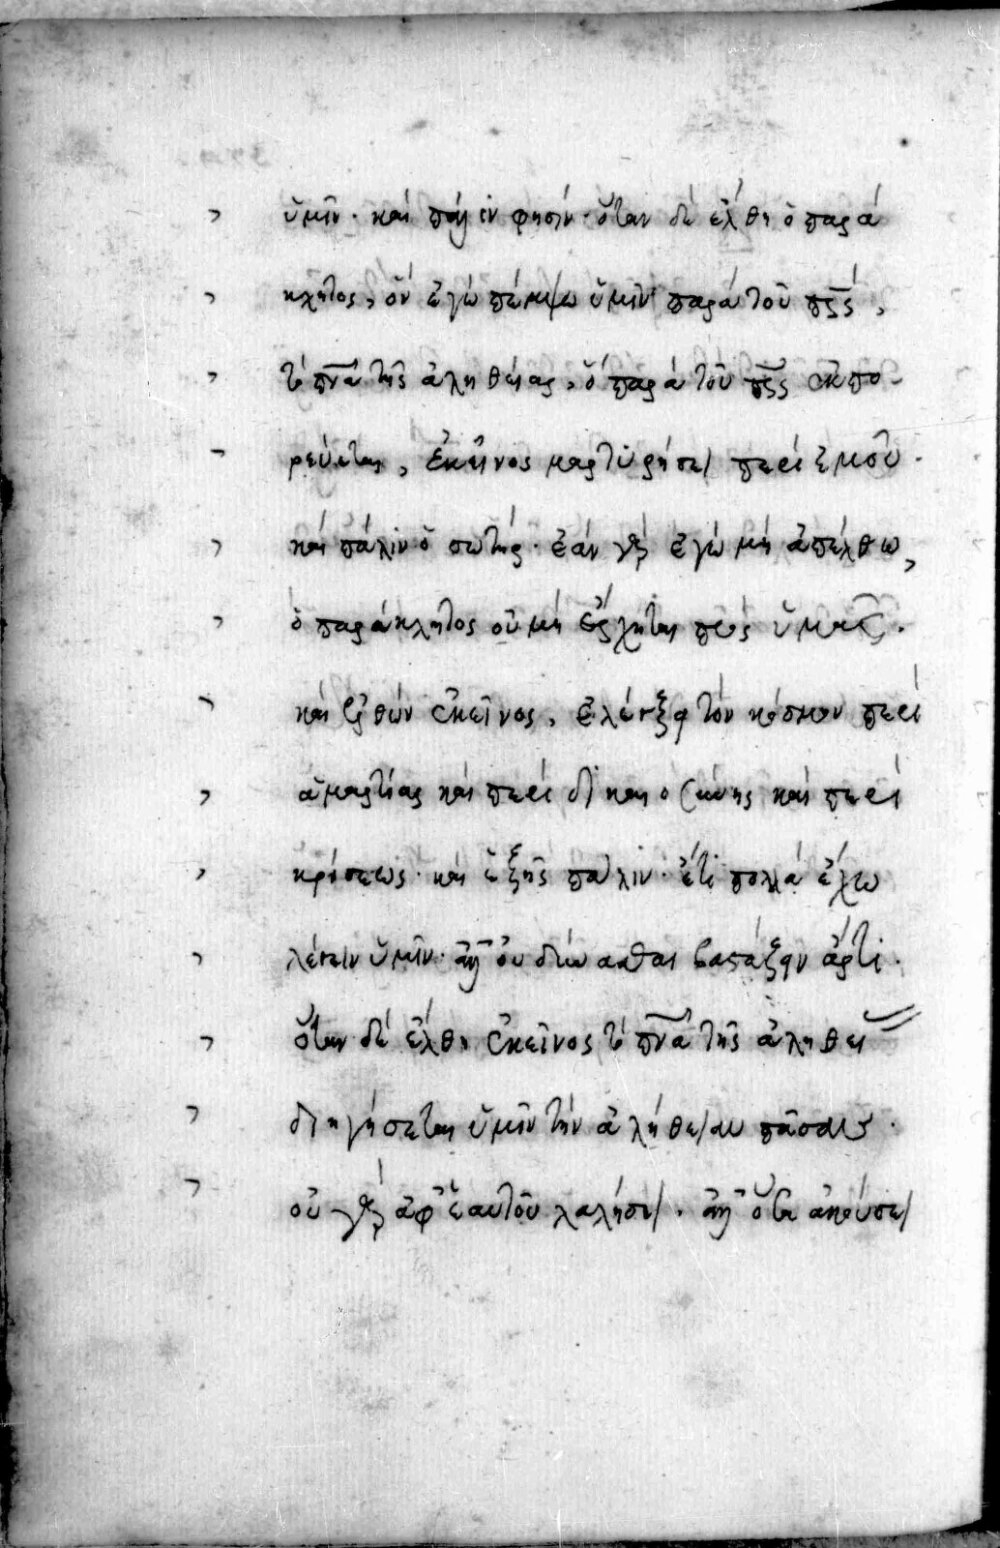 ὑμῖν· καὶ πάλιν φησίν· ὅταν δὲ ἔλθη ὁ παρά
κλητος, ὃν ἐγὼ πέμψω ὑμῖν παρὰ τοῦ πρς,
τὸ πνα τῆς ἀληθείας, ὃ παρὰ τοῦ πρς ἐκπο-
ρεύεται, ἐκεῖνος μαρτυρήσει περὶ ἐμοῦ·
καὶ πάλιν ὁ σωτήρ· ἐὰν γὰρ ἐγὼ μὴ ἀπέλθω,
ὁ παράκλητος οὐ μὴ ἔρχηται πρὸς ὑμᾶς·
καὶ ἐλθὼν ἐκεῖνος, ἐλέγξει τὸν κόσμον περὶ
ἁμαρτίας καὶ περὶ δικαιοσύνης καὶ περὶ
κρίσεως· καὶ ἑξῆς πάλιν· ἔτι πολλὰ ἔχω
λέγειν ὑμῖν· ἀλλ' οὐ δύνασθαι βαστάζειν ἄρτι·
ὅταν δὲ ἔλθη ἐκεῖνος τὸ πνα τῆς ἀληθεί
διηγήσεται ὑμῖν τὴν ἀλήθειαν πᾶσαν·
οὐ γὰρ ἀφ' ἑαυτοῦ λαλήσει· ἀλλ' ὅσα ἀκούσει